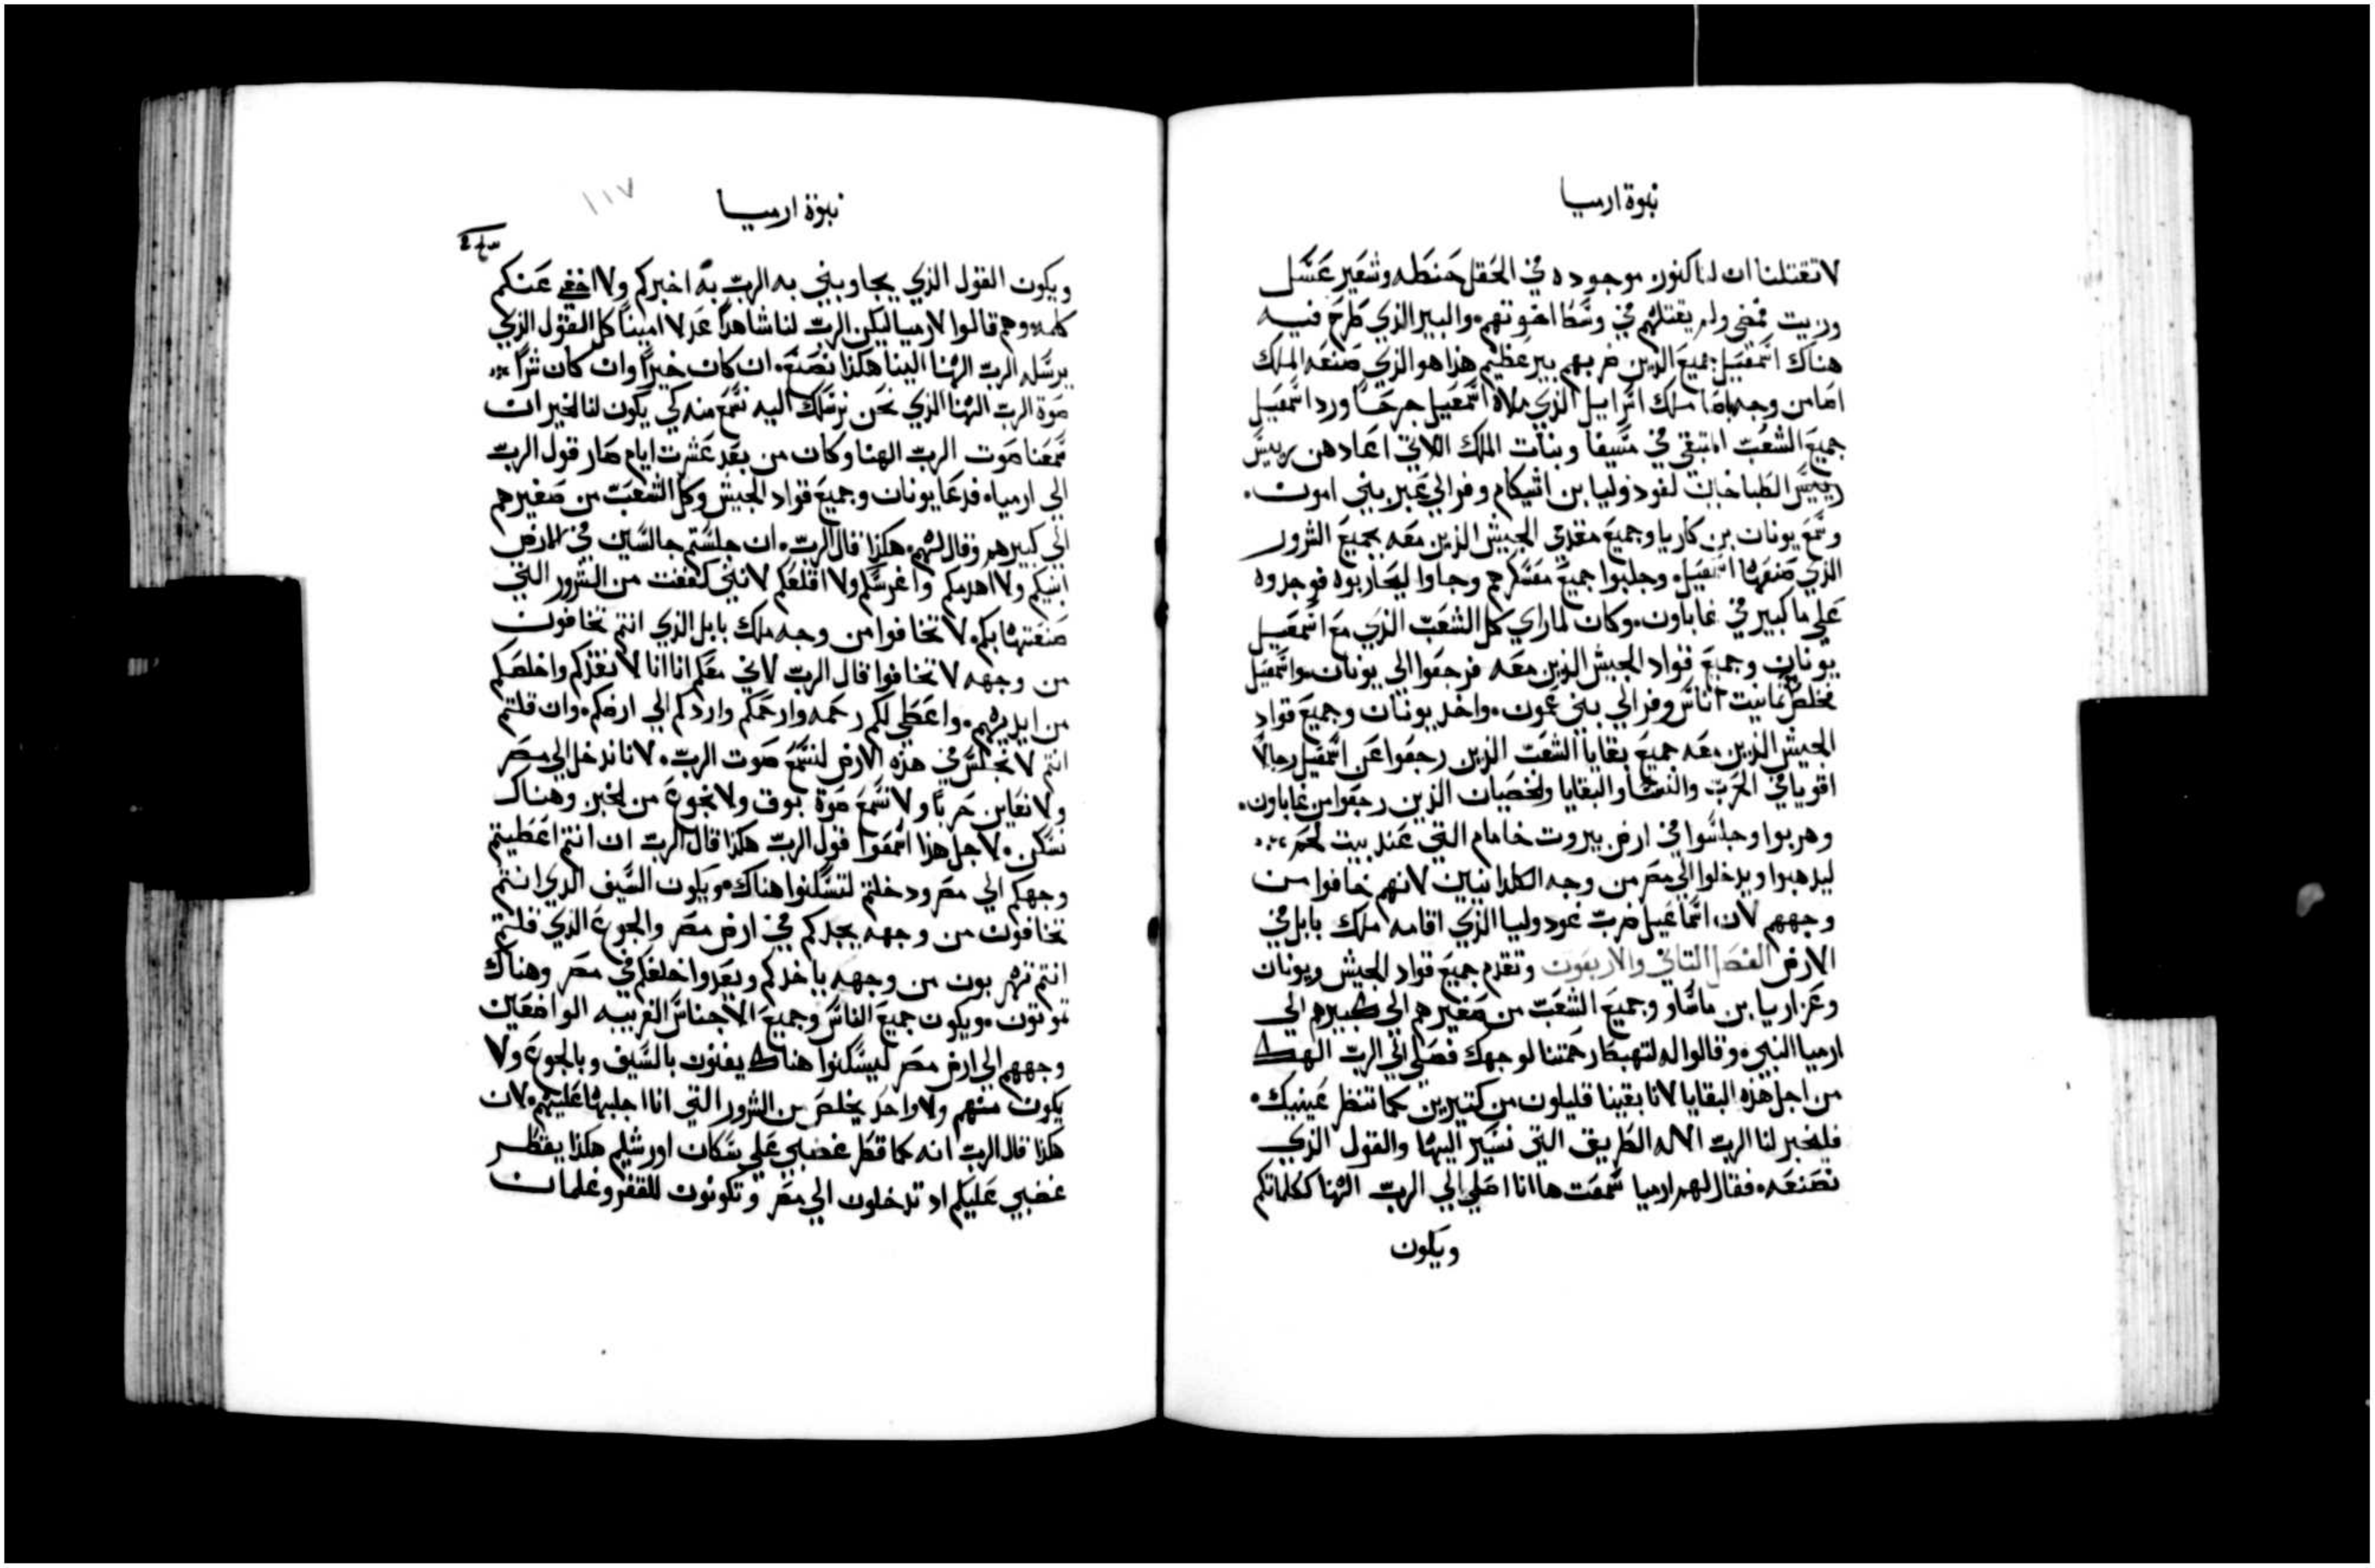 نبوة ارميا
لا تقتلنا ان لنا كنون موجوده في الحقل حنطه وشعير عسل
وزيت فمضى ولم يقتلهم في وسط اخوتهم والبير الذي طرح فيه
هناك اسمعيل جميع الذين ضربهم بير عظيم هذا هو الذي صنعه الملك
اسا من وجه باصا ملك اسراييل الذي ملاه اسمعيل جرحا ورد اسمعيل
جميع الشعب المتبقي في مسيفا وبنات الملك اللاتي اعادهن رييس
رييس الطباخين لغودوليا بن اشيكام وفر الي عبر بني امون
وسمع يونان بن كاريا وجميع مقدمي الجيش الذين معه بجميع الشرور
الذي صنعها اسمعيل وجلبوا جميع معسكرهم وجاوا ليحاربوه فوجدوه
علي ما كبير في غاباون وكان لما راي كل الشعب الذي مع اسمعيل
يونان وجميع قواد الجيش الذين معه فرجعوا الي يونان واسمعيل
تخلص بثمانيت اناس وفر الي بني عمون واخد يونان وجميع قواد
الجيش الذين معه جميع بقايا الشعب الذين رجعوا عن اسمعيل رجالا
اقويا في الحرب والنسا والبقايا والخصيان الذين رجعوا من غاباون
وهربوا وجلسوا في ارض بيروت خامام التي عند بيت لحم
ليدهبوا ويدخلوا الي مصر من وجه الكلدانيين لانهم خافوا من
وجههم لان اسماعيل ضرب غودوليا الذي اقامه ملك بابل في
الارض الفصل التاني والاربعون وتقدم جميع قواد الجيش ويونان
وعزاريا بن ماساو وجميع الشعب من صغيرهم الي كبيرهم الي
ارميا النبي وقالوا له لتهبط رحمتنا لوجهك فصلي الي الرب الهك
من اجل هذه البقايا لانا بقينا قليلون من كتيرين كما تنظر عينيك
فليخبر لنا الرب الاله الطريق التي نسير اليها والقول الذي
نصنعه فقال لهم ارميا سمعت ها انا اصلي الي الرب الهنا ككلماتكم
ويكون
نبوة ارميا
١١٧
ويكون القول الذي يجاوبني به الرب به اخبركم ولا اخفي عنكم
كلمه وهم قالوا لارميا ليكن الرب لنا شاهدا عدلا امينا كل القول الذي
يرسله الرب الهنا الينا هكذا نصنع ان كان خيرا وان كان شرا
صوة الرب الهنا الذي نحن نرسلك اليه نسمع منه كي يكون لنا الخير ان
سمعنا صوت الرب الهنا وكان من بعد عشرت ايام صار قول الرب
الي ارميا فدعا يونان وجميع قواد الجيش وكل الشعب من صغيرهم
الي كبيرهم وقال لهم هكذا قال الرب ان جلستم جالسين في الارض
ابنيكم ولا اهدمكم واغرسكم ولا اقلعكم لانني كففت من الشرور التي
صنعتها بكم لا تخافوا من وجه ملك بابل الذي انتم تخافون
من وجهه لا تخافوا قال الرب لاني معكم انا انا لانقذكم واخلصكم
من ايديهم واعطي لكم رحمه وارحمكم واردكم الي ارضكم وان قلتم
انتم لا نجلس في هذه الارض لنسمع صوت الرب لانا ندخل الي مصر
ولا نعاين حربا ولا نسمع صوة بوق ولا نجوع من الخبز وهناك
نسكن لاجل هذا اسمعوا قول الرب هكذا قال الرب ان انتم اعطيتم
وجهكم الي مصر ودخلتم لتسكنوا هناك ويكون السيف الذي انتم
تخافون من وجهه يجدكم في ارض مصر والجوع الذي قلتم
انتم تهربون من وجهه ياخدكم وبعد واخلفكم في مصر وهناك
تموتون ويكون جميع الناس وجميع الاجناس الغريبه الواضعين
وجههم الي ارض مصر ليسكنوا هناك يفنون بالسيف وبالجوع ولا
يكون منهم ولا واحد يخلص من الشرور التي انا اجلبها عليهم لان
هكذا قال الرب انه كما قطر غضبي علي سكان اورشليم هكذا يقطر
غضبي عليكم اد تدخلون الي مصر وتكونون للقفر وغلمان